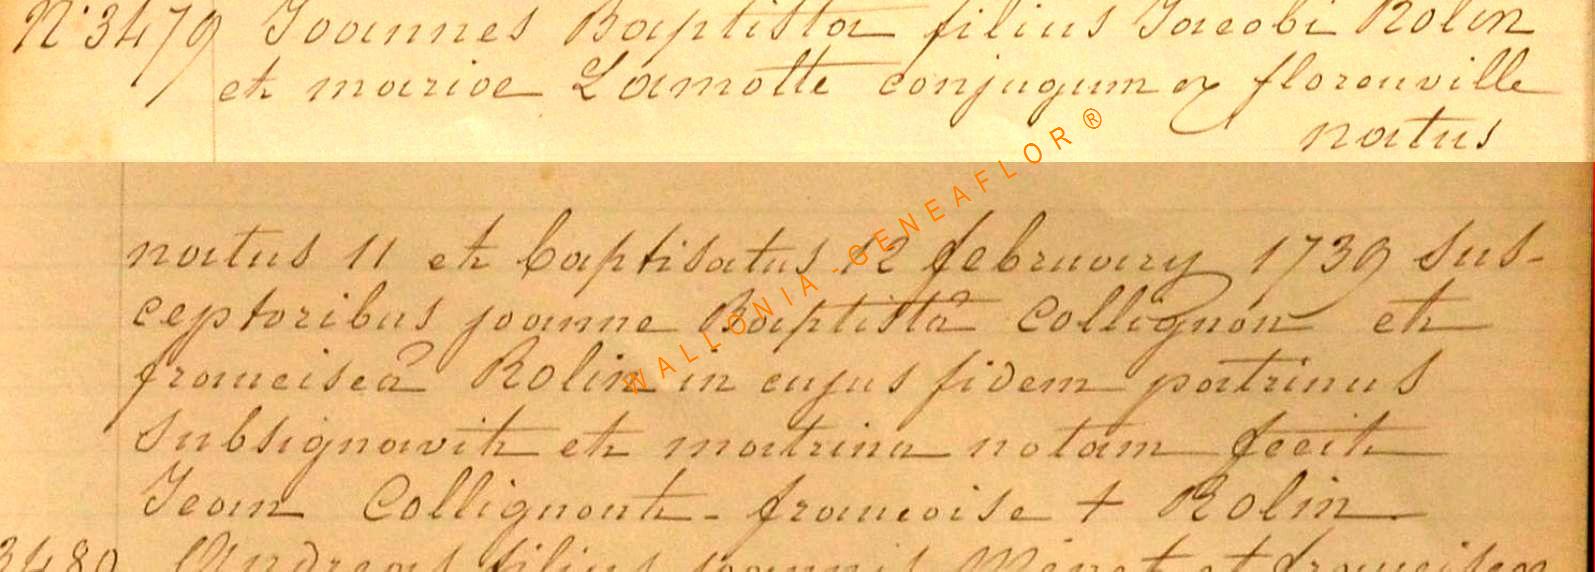 N° 3479 Joannes Baptista filius Jacobi Rolin
et mariae Lamotte conjugum ex florenville
natus
natus 11 et baptisatus 12 february 1739 sus-
ceptoribus joanne Baptistâ Collignon et
franciscâ Rolin in cujus fidem patrinus
subsignavit et matrina notam fecit
Jean Collignont - francoise + Rolin
3480 Andreas filius joannis Menet et francisca
WALLONIA-GENEAFLOR®